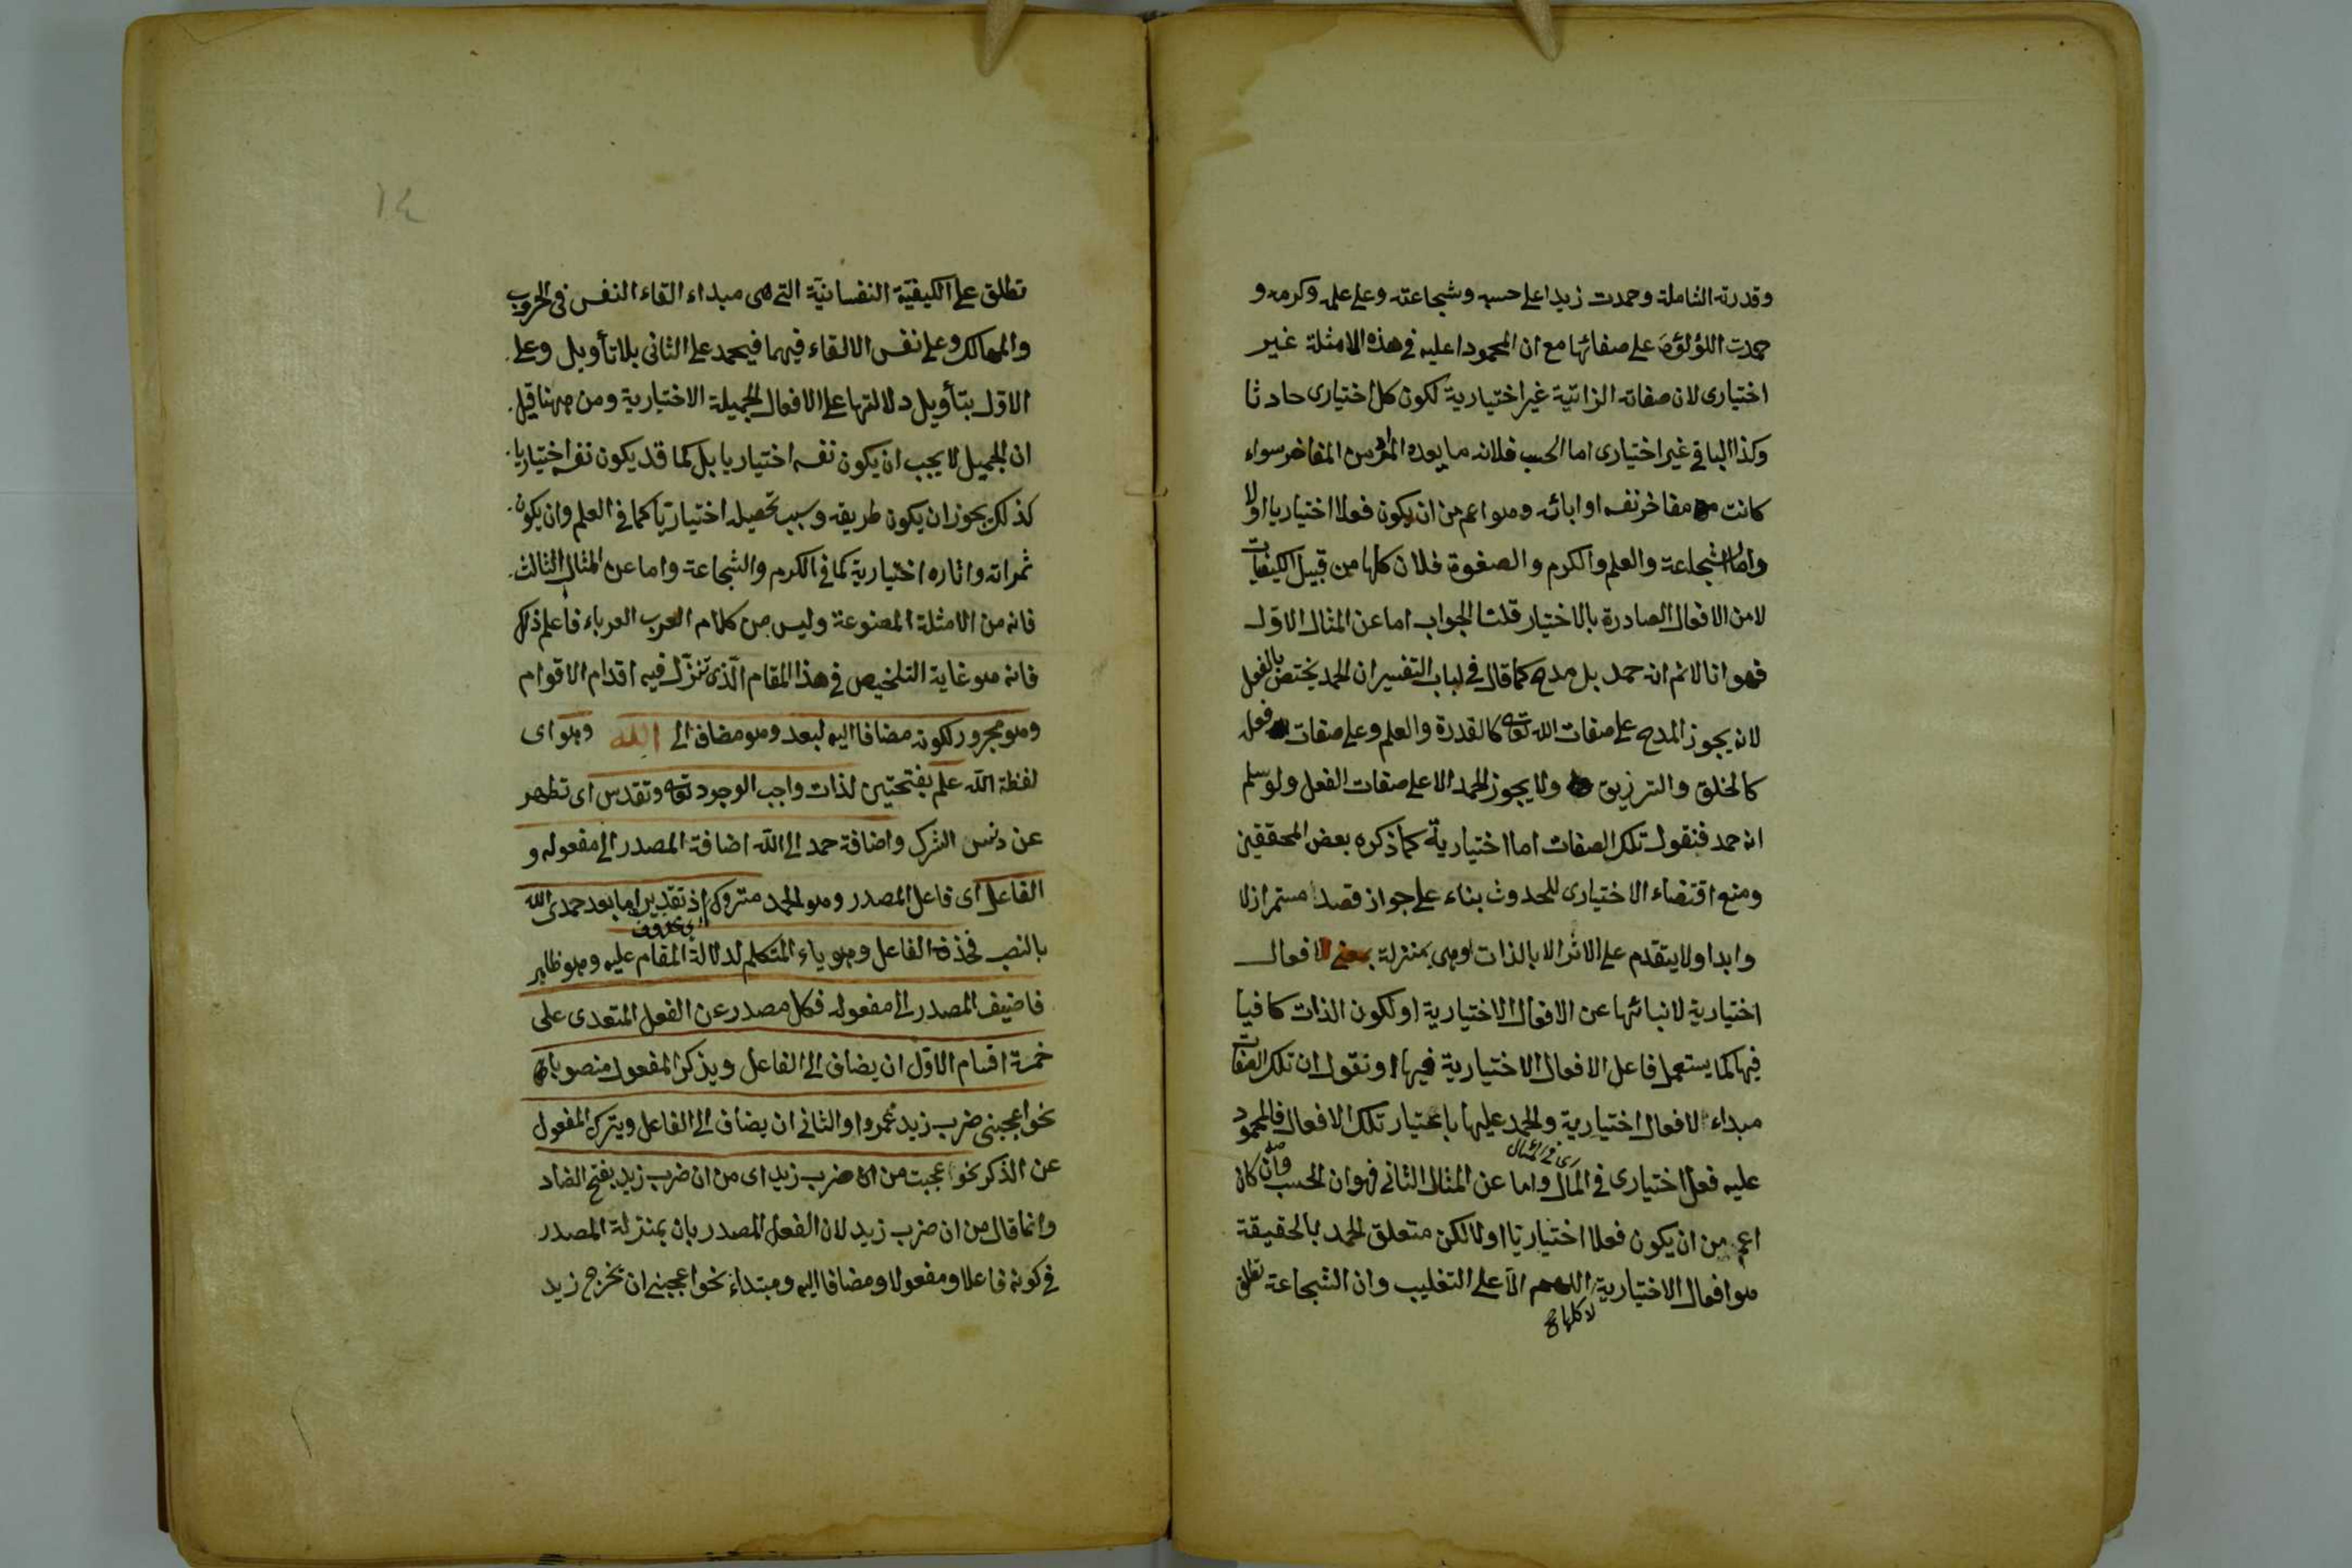 وقدرته الشاملة وحمدت زيدا على حسبه وشجاعته وعلى علمه وكرمه و
حمدت اللؤلؤة على صفائها مع ان المحمودا عليه فى هذه الامثلة غير
اختيارى لان صفاته الذاتية غير اختيارية لكون كل اختيارى حادثا
وكذا الباقى غير اختيارى اما الحسب فلانه ما يعده المرأ من المفاخر سواء
كانت مفاخر نفسه او ابائه وهو اعم من ان يكون فعلا اختياريا اولا
واما الشجاعة والعلم والكرم والصفوة فلان كلها من قبيل الكيفيات
لا من الافعال الصادرة بالاختيار قلت الجواب اما عن المثال الاول
فهو انا لانم انه حمد بل مدح كما قال فى لباب التفسير ان الحمد يختص بالفعل
لانه يجوز المدح على صفات الله تعه كالقدرة والعلم وعلى صفات فعله
كالخلق والترزيق ولا يجوز الحمد الا على صفات الفعل ولو سلم
انه حمد فنقول تلك الصفات اما اختيارية كما ذكره بعض المحققين
ومنع اقتضاء الاختيارى للحدوث بناء على جواز قصد مستمر ازلا
وابدا ولا يتقدم على الاثر الا بالذات اوهى بمنزلة الافعال
اختيارية لانبائها عن الافعال الاختيارية او لكون الذات كافيا
فيها كما يستعمل فاعل الافعال الاختيارية فيها او نقول ان تلك الصفات
مبداء الافعال اختيارية والحمد عليها باعتبار تلك الافعال فالمحمود
عليه فعل اختيارى فى المآل واما عن المثال الثانى فهو ان الحسب وان كان
اعم من ان يكون فعلا اختياريا اولا لكن متعلق الحمد بالحقيقة
هو افعال الاختيارية اللهم الا على التغليب وان الشجاعة تطلق
لا كلها
١٤
تطلق على الكيفية النفسانية التى هى مبداء القاء النفس فى الحروب
والمهالك وعلى نفس الالقاء فيهما فيحمد على الثانى بلا تأويل وعلى
الاول بتأويل دلالتها على الافعال الجميلة الاختيارية ومن ههنا قيل
ان الجميل لا يجب ان يكون نفسه اختياريا بل كما قد يكون نفسه اختياريا
كذلك يجوز ان يكون طريقه وسبب تحصيله اختياريا كما فى العلم وان يكون
ثمراته واثاره اختيارية كما فى الكرم والشجاعة واما عن المثال الثالث
فانه من الامثلة المصنوعة وليس من كلام العرب العرباء فاعلم ذلك
فانه هو غاية التلخيص فى هذا المقام الذى تنزل فيه اقدام الاقوام
وهو مجرور لكونه مضافا اليه لبعد وهو مضاف الى الله وهو اى
لفظة الله علم بفتحتين لذات واجب الوجود تعه وتقدس اى تطهر
عن دنس الشرك واضافة حمد الى الله اضافة المصدر الى مفعوله و
الفاعل اى فاعل المصدر وهو الحمد متروك اذ تقديره اما بعد حمدى الله
اى محذوف
بالنصب فحذف الفاعل وهو ياء المتكلم لدلالة المقام عليه وهو ظاهر
فاضيف المصدر الى مفعوله فكل مصدر عن الفعل المتعدى على
خمسة اقسام الاول ان يضاف الى الفاعل ويذكر المفعول منصوبا
نحو اعجبنى ضرب زيد عمروا والثانى ان يضاف الى الفاعل ويترك المفعول
عن الذكر نحو عجبت من ضرب زيد اى من ان ضرب زيد بفتح الضاد
وانما قال من ان ضرب زيد لان الفعل المصدر بان بمنزلة المصدر
فى كونه فاعلا ومفعولا ومضافا اليه ومبتداء نحو اعجبنى ان تخرج زيد